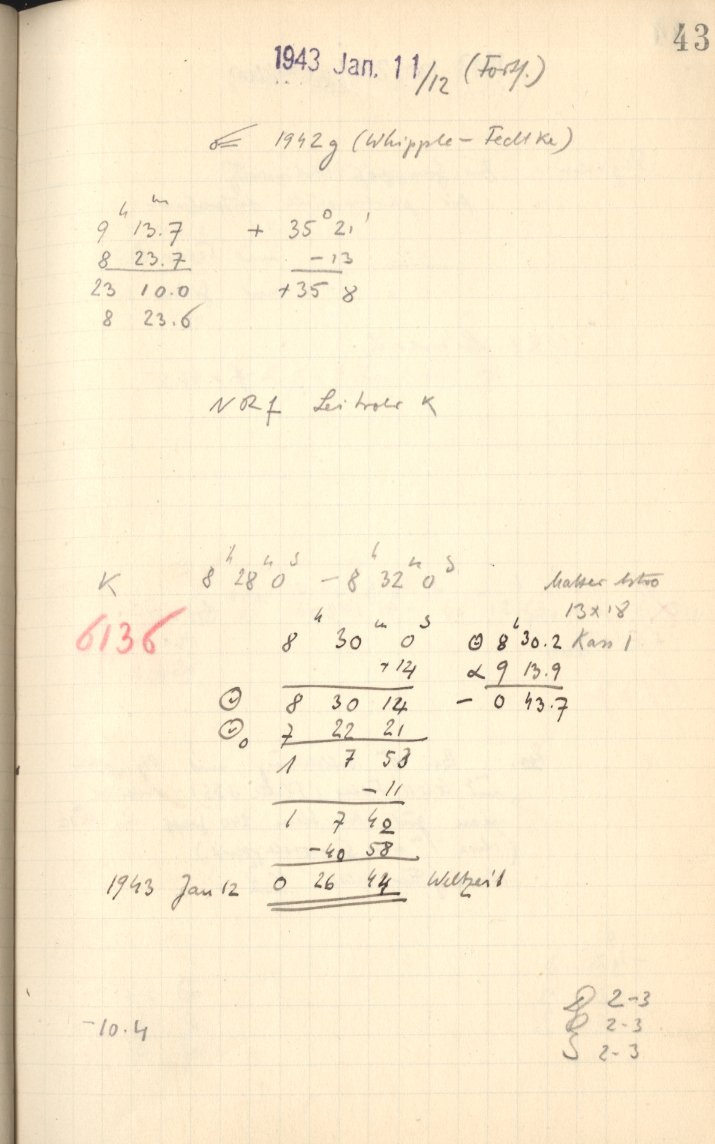 43
1943 Jan. 11/12 (Forts.)
☄ 1942g (Whipple-Fedtke)
9ʰ 13.7ᵐ + 35° 21'
8 23.7 -13
23 10.0 +35 8
8 23.6
NRf Leitrohr K
K 8ʰ 28ᵐ 0ˢ - 8ʰ 32ᵐ 0ˢ Astro
13x18
6136 8ʰ 30ᵐ 0ˢ Θ 8ʰ 30.2 Kass 1
+14 α 9 13.9
Θ 8 30 14 - 0 43.7
Θ₀ 7 22 21
1 7 53
-11
1 7 42
-40 58
1943 Jan 12 0 26 44 Weltzeit
-10.4
2-3
2-3
S 2-3